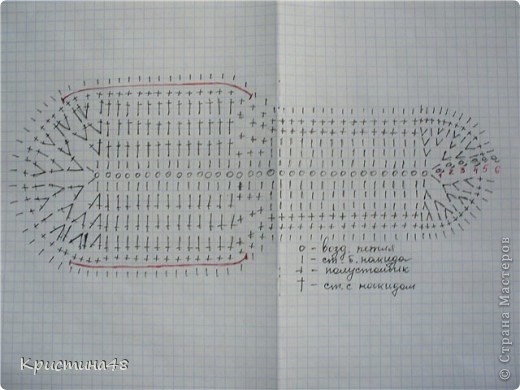 1 2 3 4 5 6
о - возд. петля
| - ст. б. накида
+ - полустолбик
† - ст. с накидом
Кристина48
© Страна Мастеров